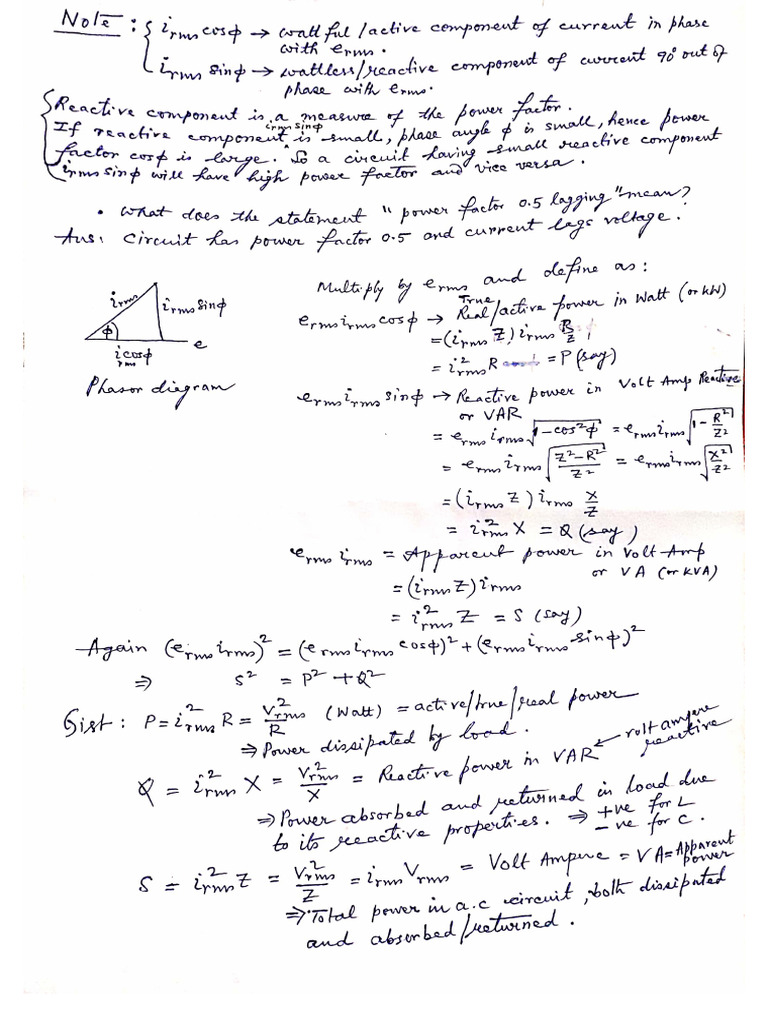 Note : { i_rms cosφ → wattful/active component of current in phase
with e_rms.
i_rms sinφ → wattless/reactive component of current 90° out of
phase with e_rms.
Reactive component is a measure of the power factor.
If reactive component i_rms sinφ is small, phase angle φ is small, hence power
factor cosφ is large. So a circuit having small reactive component
i_rms sinφ will have high power factor and vice versa.
• What does the statement "power factor 0.5 lagging" mean?
Ans: Circuit has power factor 0.5 and current lags voltage.
i_rms
i_rms sinφ
φ
i_rms cosφ
e
Phasor diagram
Multiply by e_rms and define as:
e_rms i_rms cosφ → True/Real/active power in Watt (or kW)
= (i_rms Z) i_rms R/Z
= i²_rms R = P (say)
e_rms i_rms sinφ → Reactive power in Volt Amp Reactive
or VAR
= e_rms i_rms √(1-cos²φ) = e_rms i_rms √(1-R²/Z²)
= e_rms i_rms √((Z²-R²)/Z²) = e_rms i_rms √(X²/Z²)
= (i_rms Z) i_rms X/Z
= i²_rms X = Q (say)
e_rms i_rms = Apparent power in Volt Amp
or VA (or KVA)
= (i_rms Z) i_rms
= i²_rms Z = S (say)
Again (e_rms i_rms)² = (e_rms i_rms cosφ)² + (e_rms i_rms sinφ)²
⇒ S² = P² + Q²
Gist : P = i²_rms R = V²_rms/R (Watt) = active/true/real power
⇒ Power dissipated by load.
Q = i²_rms X = V²_rms/X = Reactive power in VAR ← volt ampere reactive
⇒ Power absorbed and returned in load due
to its reactive properties. ⇒ +ve for L
-ve for C.
S = i²_rms Z = V²_rms/Z = i_rms V_rms = Volt Ampere = VA = Apparent power
⇒ Total power in a.c circuit, both dissipated
and absorbed/returned.